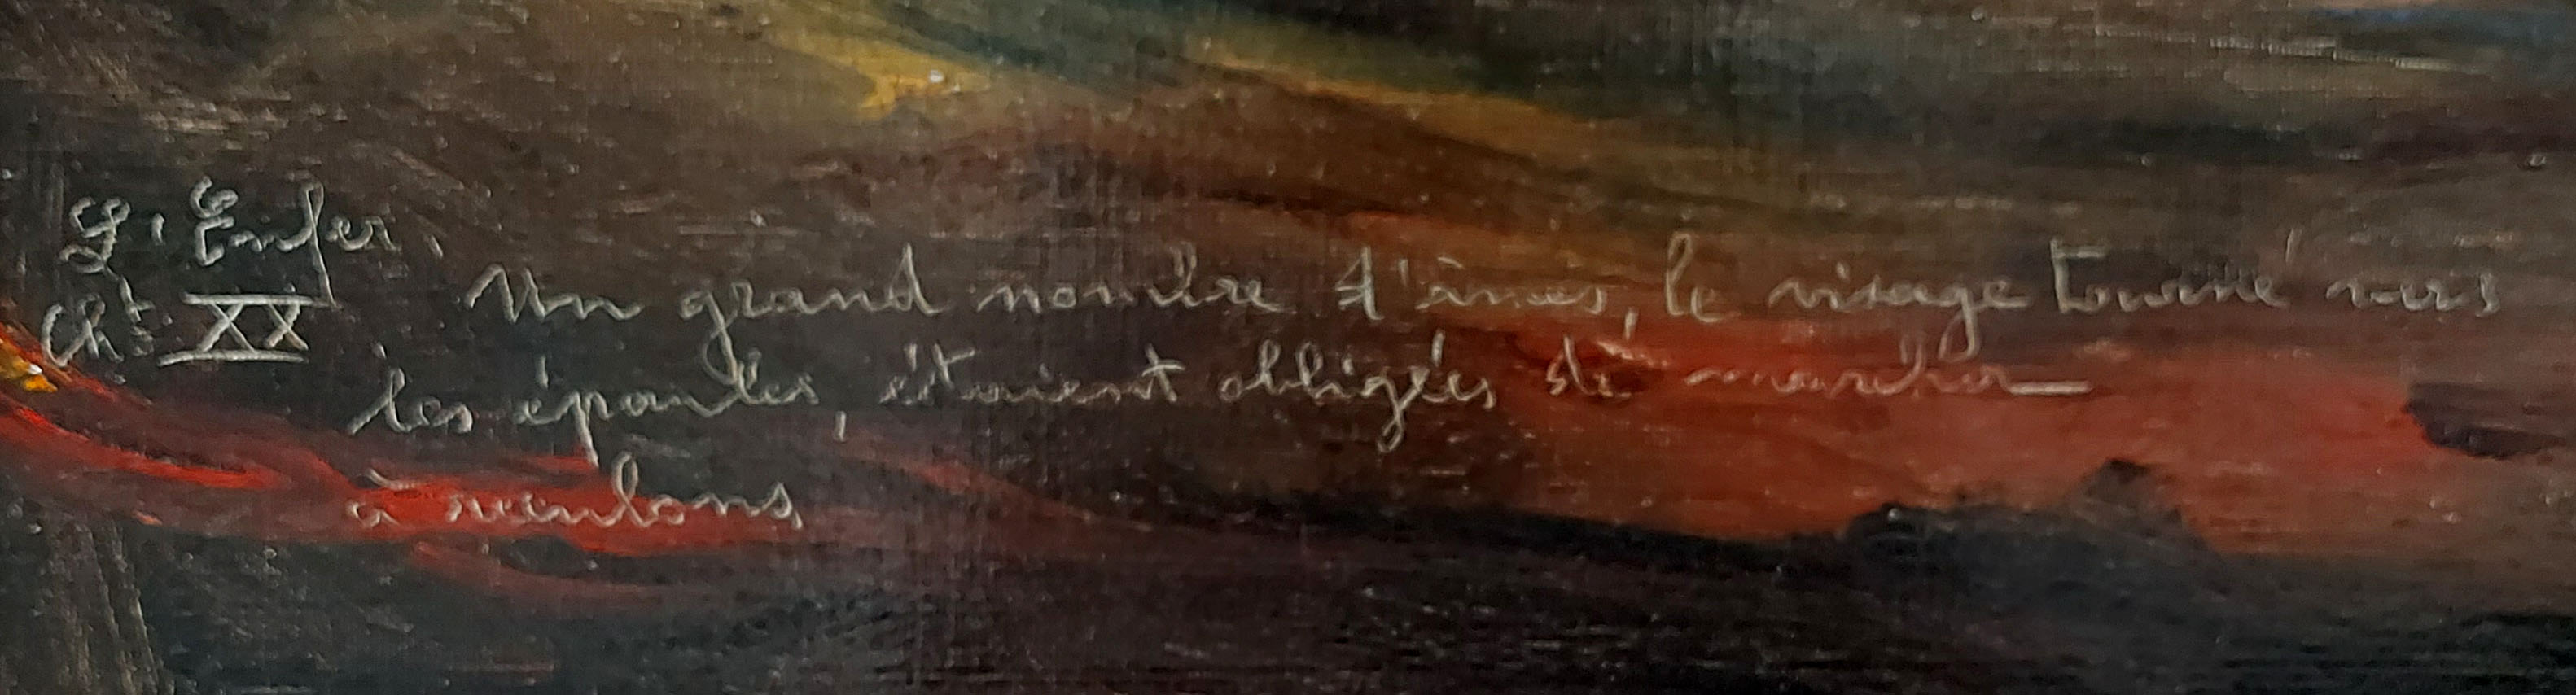 L'Enfer.
Cht XX
Un grand nombre d'âmes, le visage tourné vers
les épaules, étaient obligées de marcher
à reculons